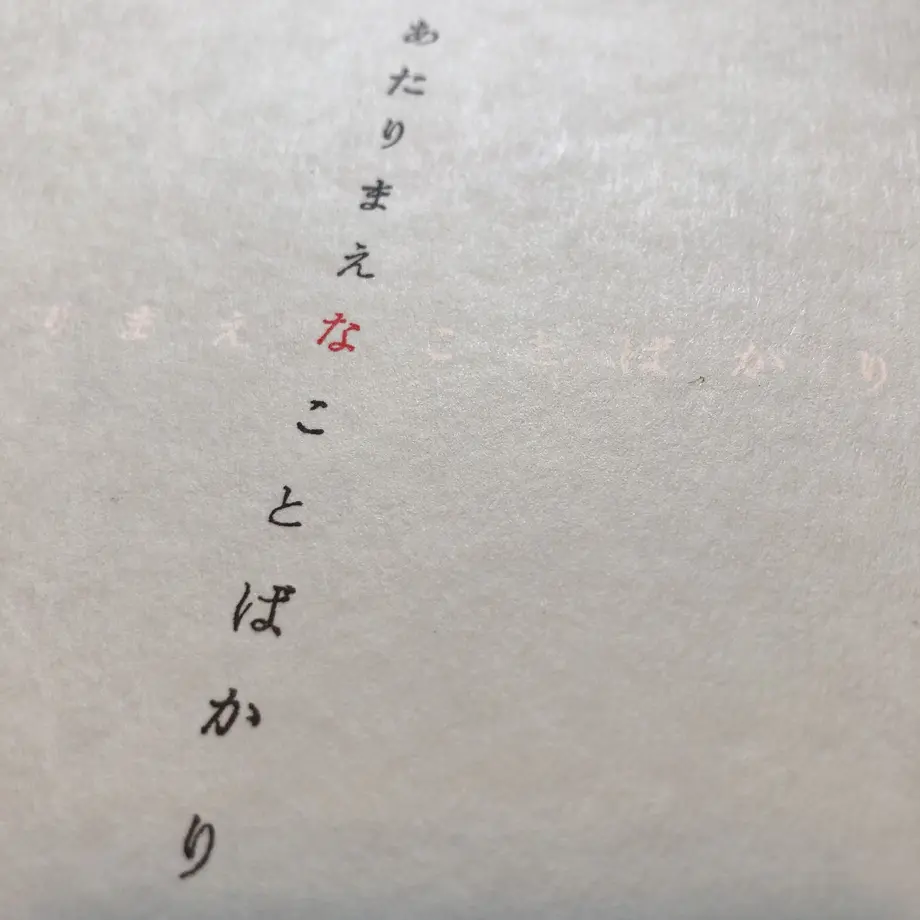 あたりまえなことばかり
りまえ こ と ばかり